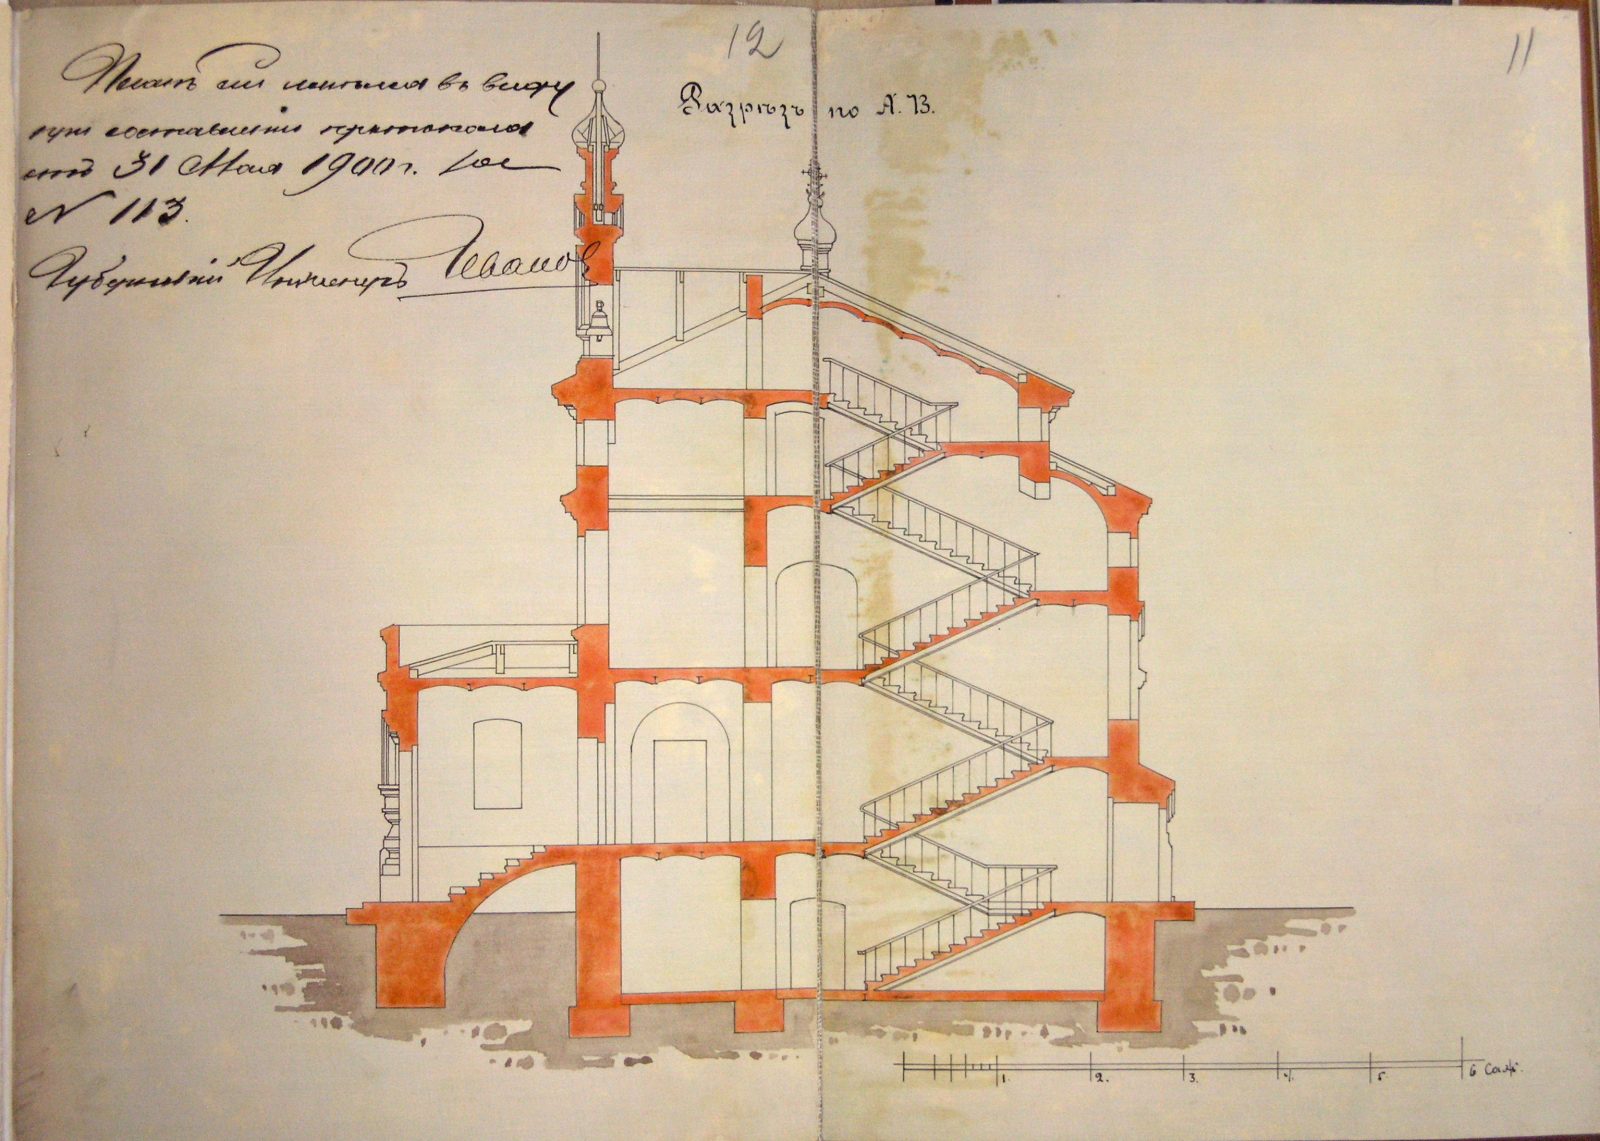 12
11
Разрѣзъ по А.В.
Планъ сей имѣлся въ виду
при составленіи протокола
отъ 31 Мая 1900 г. за
N 113.
Губернскій Инженеръ
1. 2. 3. 4. 5. 6 Саж.